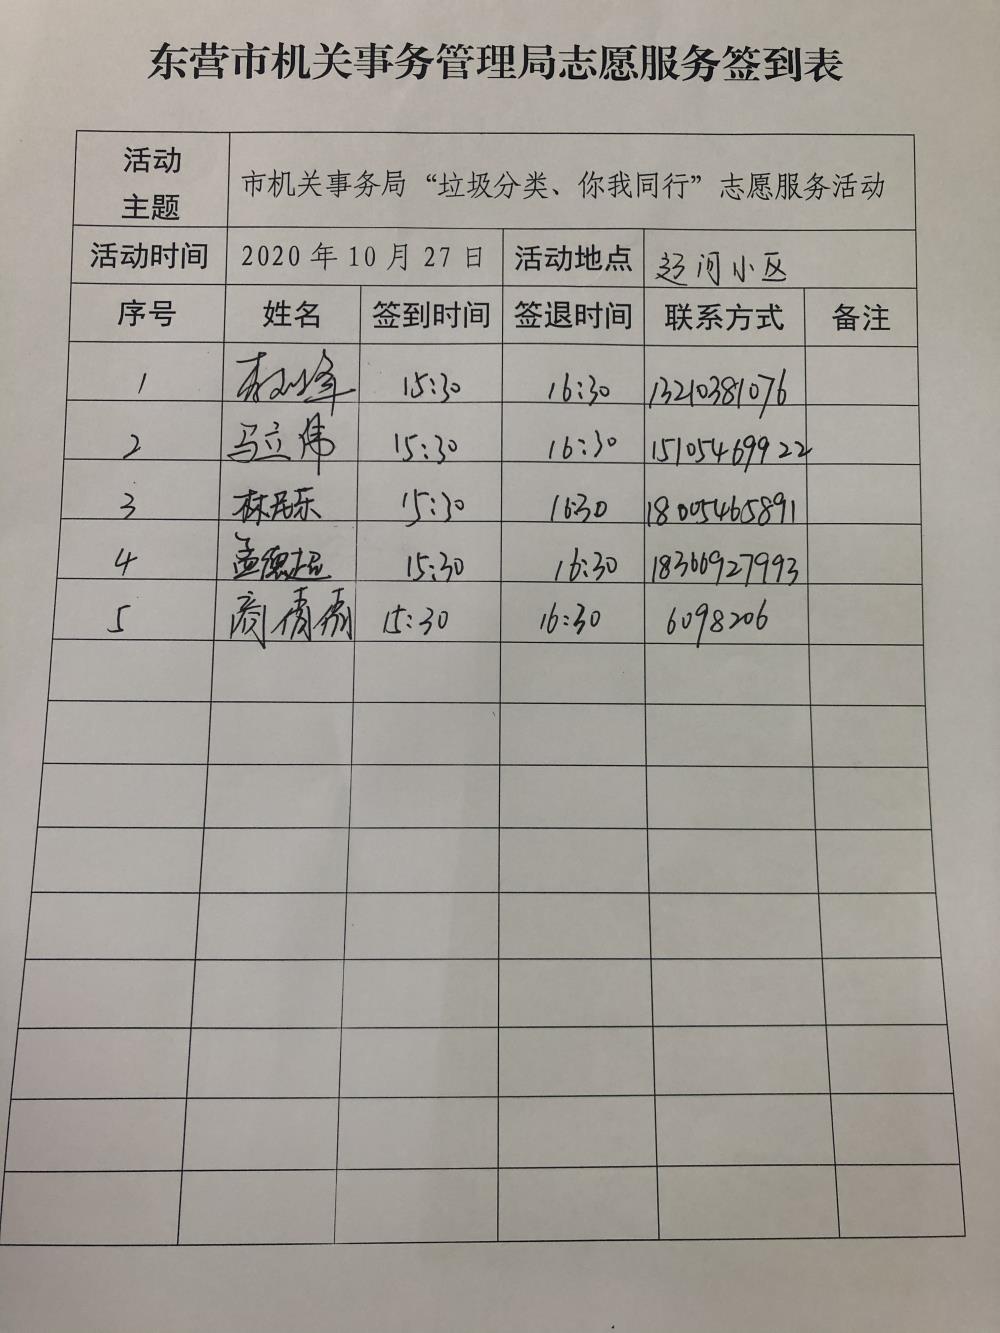 东营市机关事务管理局志愿服务签到表
活动主题 市机关事务局“垃圾分类、你我同行”志愿服务活动
活动时间 2020年10月27日 活动地点 赵河小区
序号 姓名 签到时间 签退时间 联系方式 备注
1 15:30 16:30 13210381076
2 马立伟 15:30 16:30 15105469922
3 林民乐 15:30 16:30 18005465891
4 孟德超 15:30 16:30 18366927993
5 商倩倩 15:30 16:30 6098206